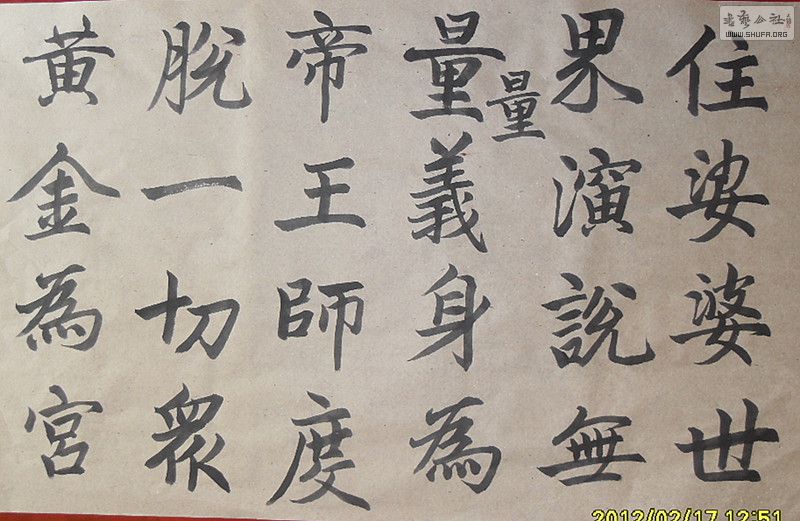 住娑婆世
界演說無
量義身為
量
帝王師度
脫一切眾
黃金為宮
書藝公社
WWW.SHUFA.ORG
2012/02/17 12:51